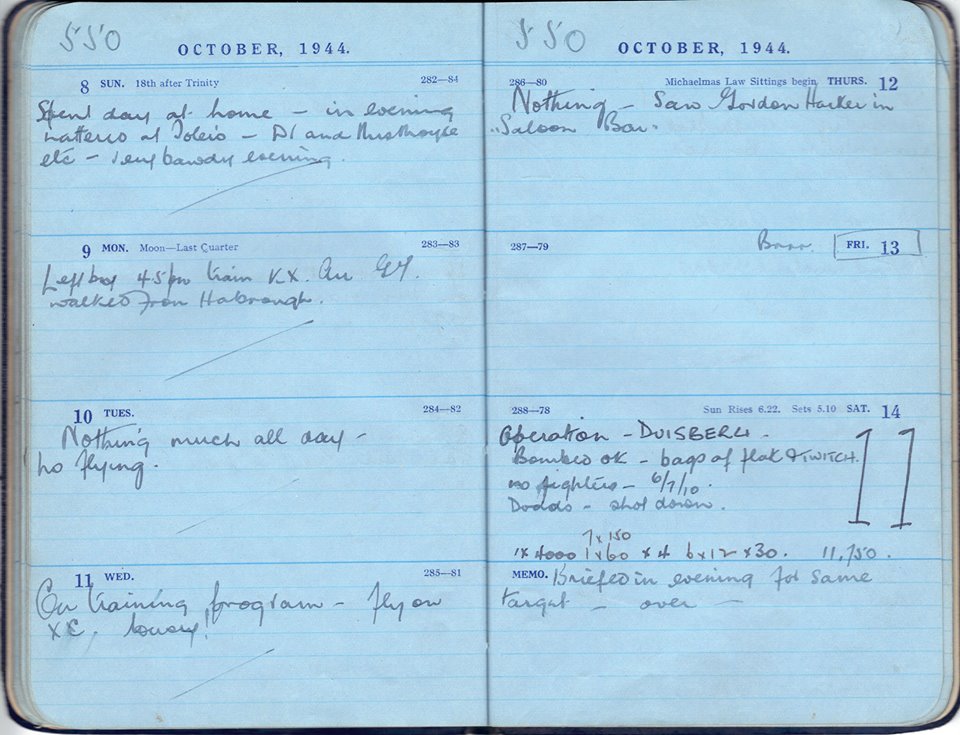 550
OCTOBER, 1944.
8 SUN. 18th after Trinity 282—84
Spent day at home – in evening
at – and
etc – very bawdy evening.
9 MON. Moon—Last Quarter 283—83
Left by 45pm train KX. Arr GY.
walked from Habrough.
10 TUES. 284—82
Nothing much all day –
no flying.
11 WED. 285—81
On training program – fly on
XC,
550
OCTOBER, 1944.
286—80 Michaelmas Law Sittings begin THURS. 12
Nothing – Saw Gordon Harker in
"Saloon Bar.
287—79 FRI. 13
288—78 Sun Rises 6.22. Sets 5.10 SAT. 14
Operation – DUISBERG.
Bombed OK – bags of flak & TWITCH.
no fighters – 6/7/10.
Dodds – shot down.
11
7 x 150
1x 4000 1x60 x 4 6x12 x30. 11,750.
MEMO. Briefed in evening for same
target – over –